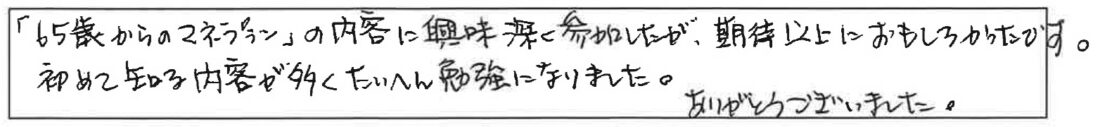 「65歳からのマネープラン」の内容に興味深く参加したが、期待以上におもしろかったです。
初めて知る内容が多くたいへん勉強になりました。
ありがとうございました。